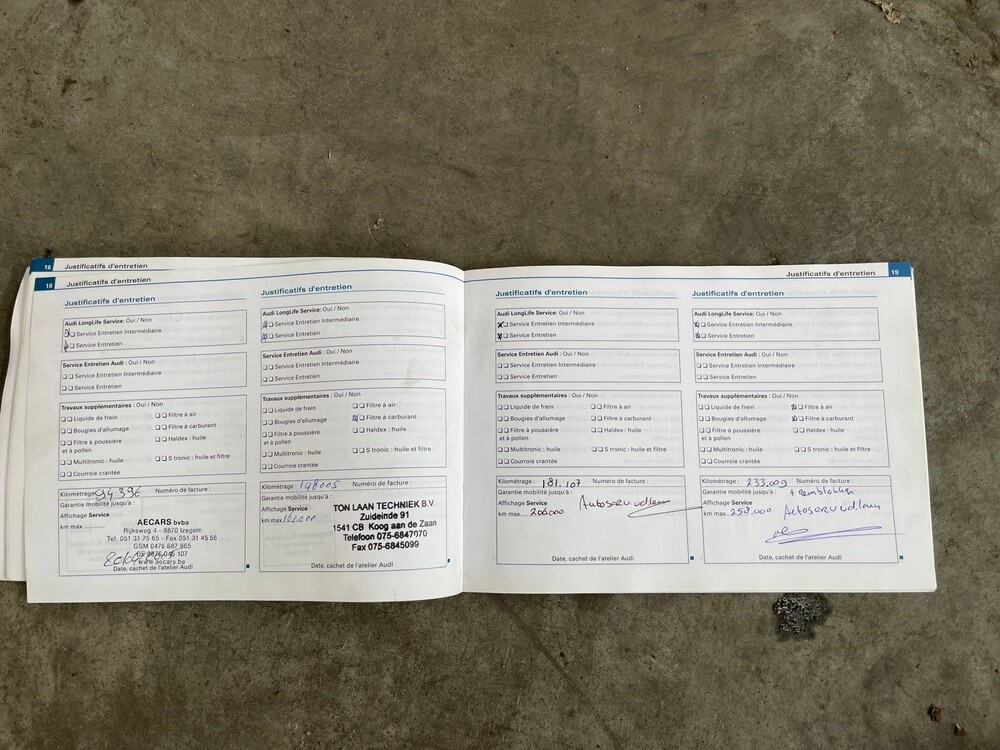 16 Justificatifs d'entretien
18 Justificatifs d'entretien
Justificatifs d'entretien
Audi LongLife Service: Oui / Non
Service Entretien Intermédiaire
Service Entretien
Service Entretien Audi : Oui / Non
Service Entretien Intermédiaire
Service Entretien
Travaux supplémentaires : Oui / Non
Liquide de frein
Filtre à air
Bougies d'allumage
Filtre à carburant
Filtre à poussière
et à pollen
Haldex : huile
Multitronic : huile
S tronic : huile et filtre
Courroie crantée
Kilométrage : 94396 Numéro de facture :
Garantie mobilité jusqu'à :
Affichage Service
km max.
AECARS bvba
Rijksweg 4 - 8870 Izegem
Tel. 051 31 75 65 - Fax 051 31 45 56
GSM 0476 687 865
www.aecars.be
Date, cachet de l'atelier Audi
Justificatifs d'entretien
Audi LongLife Service: Oui / Non
Service Entretien Intermédiaire
Service Entretien
Service Entretien Audi : Oui / Non
Service Entretien Intermédiaire
Service Entretien
Travaux supplémentaires : Oui / Non
Liquide de frein
Filtre à air
Bougies d'allumage
Filtre à carburant
Filtre à poussière
et à pollen
Haldex : huile
Multitronic : huile
S tronic : huile et filtre
Courroie crantée
Kilométrage : 148005 Numéro de facture :
Garantie mobilité jusqu'à :
Affichage Service
km max.
TON LAAN TECHNIEK B.V.
Zuideinde 91
1541 CB Koog aan de Zaan
Telefoon 075-6847070
Fax 075-6845099
Date, cachet de l'atelier Audi
Justificatifs d'entretien 19
Justificatifs d'entretien
Audi LongLife Service: Oui / Non
Service Entretien Intermédiaire
Service Entretien
Service Entretien Audi : Oui / Non
Service Entretien Intermédiaire
Service Entretien
Travaux supplémentaires : Oui / Non
Liquide de frein
Filtre à air
Bougies d'allumage
Filtre à carburant
Filtre à poussière
et à pollen
Haldex : huile
Multitronic : huile
S tronic : huile et filtre
Courroie crantée
Kilométrage : 181.107 Numéro de facture :
Garantie mobilité jusqu'à :
Affichage Service
km max. 206.000
Date, cachet de l'atelier Audi
Justificatifs d'entretien
Audi LongLife Service: Oui / Non
Service Entretien Intermédiaire
Service Entretien
Service Entretien Audi : Oui / Non
Service Entretien Intermédiaire
Service Entretien
Travaux supplémentaires : Oui / Non
Liquide de frein
Filtre à air
Bougies d'allumage
Filtre à carburant
Filtre à poussière
et à pollen
Haldex : huile
Multitronic : huile
S tronic : huile et filtre
Courroie crantée
Kilométrage : 233.009 Numéro de facture :
Garantie mobilité jusqu'à : + remblokken
Affichage Service
km max. 258.000
Date, cachet de l'atelier Audi